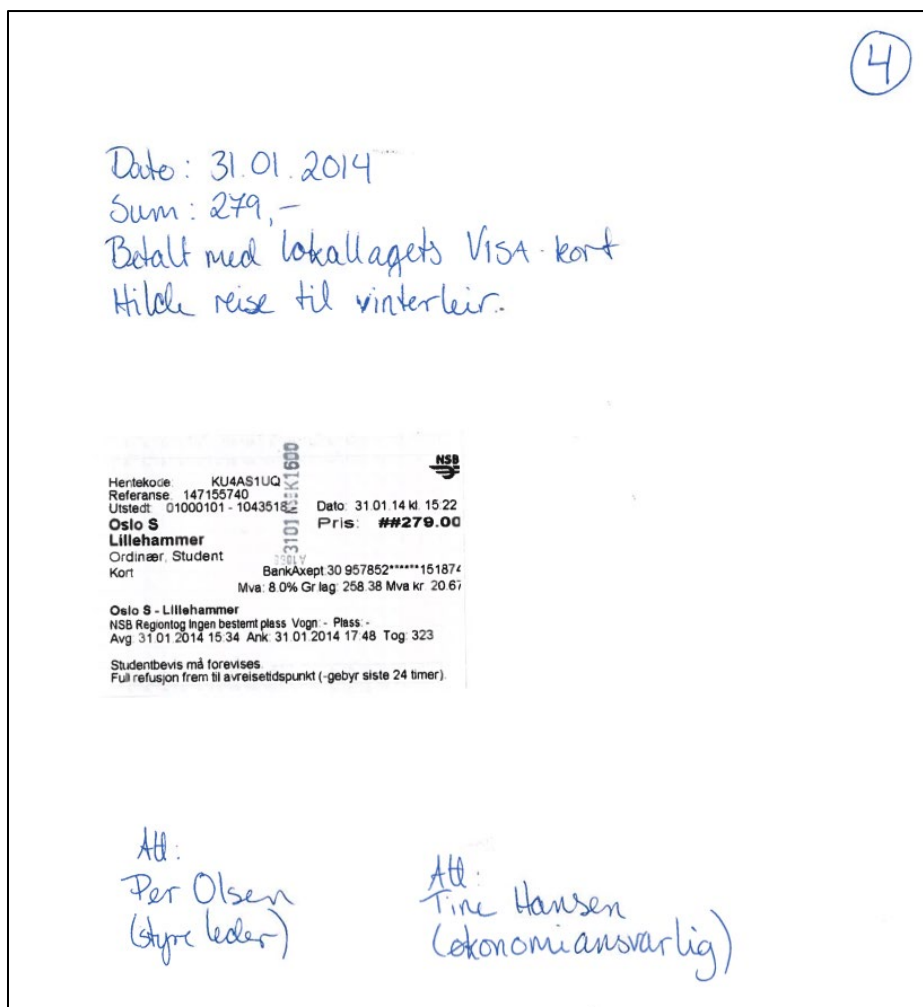 4
Dato: 31.01.2014
Sum: 279,-
Betalt med lokallagets VISA-kort
Hilde reise til vinterleir.
NSB
Hentekode: KU4AS1UQ
Referanse: 147155740
Utstedt: 01000101 - 1043518 Dato: 31.01.14 kl. 15.22
Oslo S Pris: ##279.00
Lillehammer
Ordinær, Student
Kort BankAxept 30 957852******151874
Mva: 8.0% Gr.lag: 258.38 Mva kr 20.67
3101 NSB K1600
Oslo S - Lillehammer
NSB Regiontog Ingen bestemt plass Vogn: - Plass: -
Avg: 31.01.2014 15:34 Ank: 31.01.2014 17:48 Tog: 323
Studentbevis må forevises.
Full refusjon frem til avreisetidspunkt (-gebyr siste 24 timer).
Att:
Per Olsen
(styre leder)
Att:
Tine Hansen
(økonomiansvarlig)